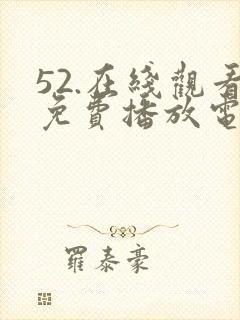 52.在綫觀看
免費播放電
羅泰豪